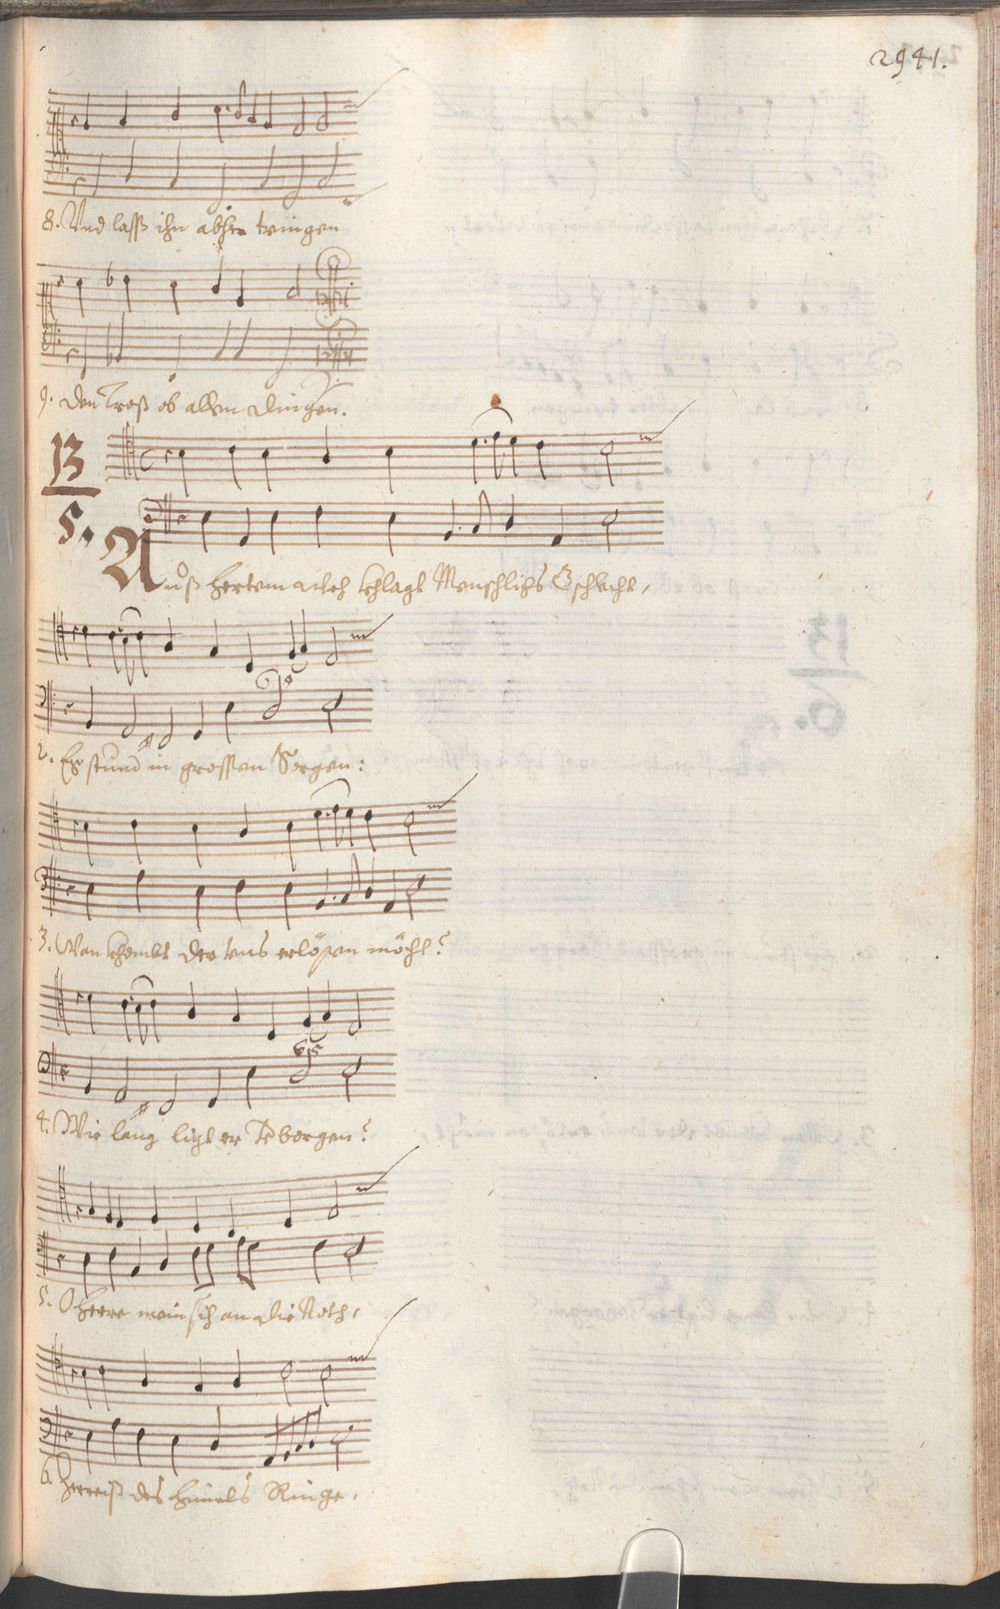 2941.
8. Vnd lasß ihn abher tringen
9. Den Trost ob allen Dingen.
13
5.
Auß hertem Weh khlagt Menschlichs Gschlecht,
2. Eß stund in grossen Sorgen:
3. Wan khombt der vns erlösen möcht?
4. Wie lang ligt er verborgen?
5. O Herre mein sich an die Noth,
6. Zerreiß des Himels Ringe,